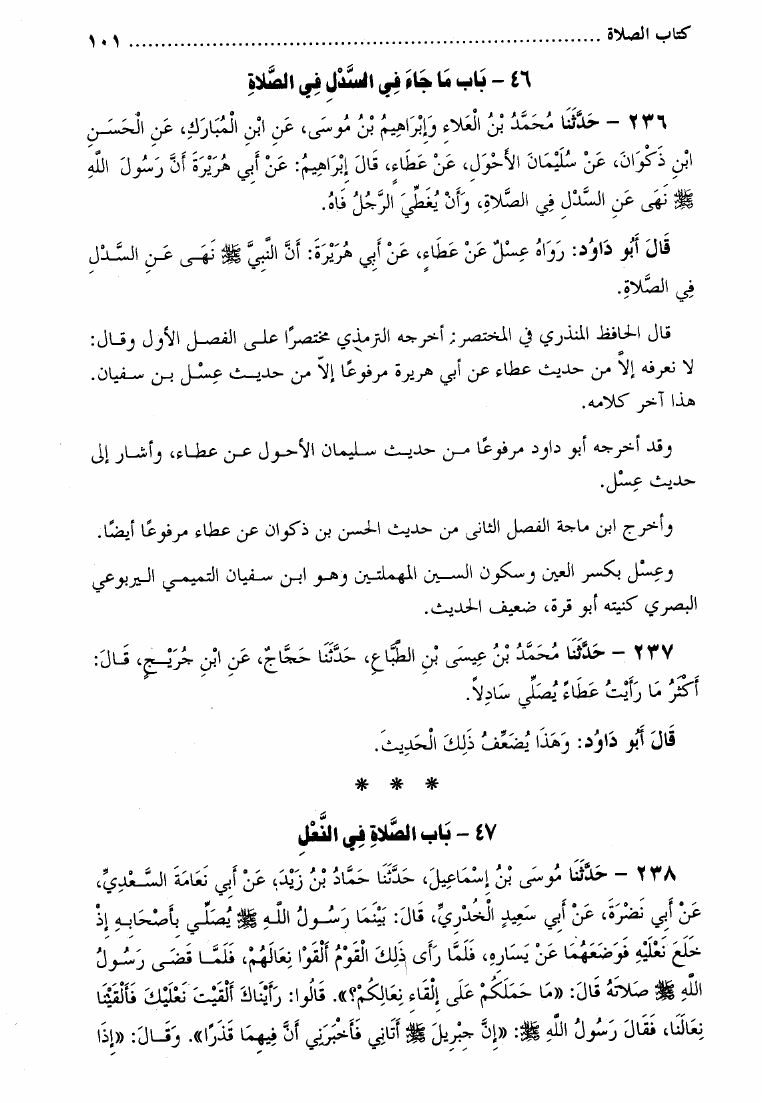 كتاب الصلاة ................................................................ ١٠١
٤٦ - بَاب مَا جَاءَ فِي السَّدْلِ فِي الصَّلاةِ
٢٣٦ - حَدَّثَنَا مُحَمَّدُ بْنُ الْعَلاءِ وَإِبْرَاهِيمُ بْنُ مُوسَى، عَنِ ابْنِ الْمُبَارَكِ، عَنِ الْحَسَنِ
ابْنِ ذَكْوَانَ، عَنْ سُلَيْمَانَ الأَحْوَلِ، عَنْ عَطَاءٍ، قَالَ إِبْرَاهِيمُ: عَنْ أَبِي هُرَيْرَةَ أَنَّ رَسُولَ اللَّهِ
ﷺ نَهَى عَنِ السَّدْلِ فِي الصَّلاةِ، وَأَنْ يُغَطِّيَ الرَّجُلُ فَاهُ.
قَالَ أَبُو دَاوُد: رَوَاهُ عِسْلٌ عَنْ عَطَاءٍ، عَنْ أَبِي هُرَيْرَةَ: أَنَّ النَّبِيَّ ﷺ نَهَى عَنِ السَّدْلِ
فِي الصَّلاةِ.
قال الحافظ المنذري في المختصر: أخرجه الترمذي مختصرًا على الفصل الأول وقال:
لا نعرفه إلاَّ من حديث عطاء عن أبي هريرة مرفوعًا إلاّ من حديث عِسْل بن سفيان.
هذا آخر كلامه.
وقد أخرجه أبو داود مرفوعًا من حديث سليمان الأحول عن عطاء، وأشار إلى
حديث عِسْل.
وأخرج ابن ماجة الفصل الثانى من حديث الحسن بن ذكوان عن عطاء مرفوعًا أيضًا.
وعِسْل بكسر العين وسكون السين المهملتين وهو ابن سفيان التميمي اليربوعي
البصري كنيته أبو قرة، ضعيف الحديث.
٢٣٧ - حَدَّثَنَا مُحَمَّدُ بْنُ عِيسَى بْنِ الطَّبَّاعِ، حَدَّثَنَا حَجَّاجٌ، عَنِ ابْنِ جُرَيْجٍ، قَالَ:
أَكْثَرُ مَا رَأَيْتُ عَطَاءً يُصَلِّي سَادِلاً.
قَالَ أَبُو دَاوُد: وَهَذَا يُضَعِّفُ ذَلِكَ الْحَدِيثَ.
* * *
٤٧ - بَاب الصَّلاةِ فِي النَّعْلِ
٢٣٨ - حَدَّثَنَا مُوسَى بْنُ إِسْمَاعِيلَ، حَدَّثَنَا حَمَّادُ بْنُ زَيْدَ، عَنْ أَبِي نَعَامَةَ السَّعْدِيِّ،
عَنْ أَبِي نَضْرَةَ، عَنْ أَبِي سَعِيدٍ الْخُدْرِيِّ، قَالَ: بَيْنَمَا رَسُولُ اللَّهِ ﷺ يُصَلِّي بِأَصْحَابِهِ إِذْ
خَلَعَ نَعْلَيْهِ فَوَضَعَهُمَا عَنْ يَسَارِهِ، فَلَمَّا رَأَى ذَلِكَ الْقَوْمُ أَلْقَوْا نِعَالَهُمْ، فَلَمَّا قَضَى رَسُولُ
اللَّهِ ﷺ صَلاتَهُ قَالَ: «مَا حَمَلَكُمْ عَلَى إِلْقَاءِ نِعَالِكُمْ؟». قَالُوا: رَأَيْنَاكَ أَلْقَيْتَ نَعْلَيْكَ فَأَلْقَيْنَا
نِعَالَنَا، فَقَالَ رَسُولُ اللَّهِ ﷺ: «إِنَّ جِبْرِيلَ ﷺ أَتَانِي فَأَخْبَرَنِي أَنَّ فِيهِمَا قَذَرًا». وَقَالَ: «إِذَا